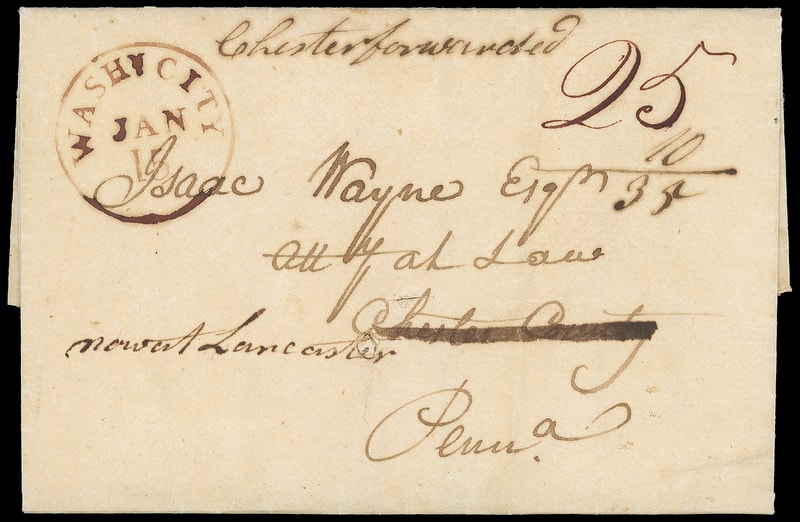 Chester forwarded
WASHN CITY
JAN
25
10
35
Isaac Wayne Esqr
Atty at Law
Chester County
now at Lancaster
Penna.